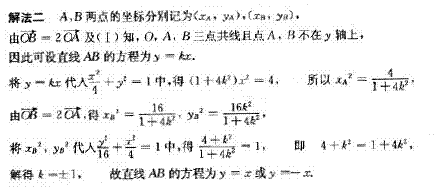 解法二 A,B两点的坐标分别记为(x_A, y_A),(x_B, y_B),
由\overrightarrow{OB} = 2\overrightarrow{OA}及(Ⅰ)知,O,A,B三点共线且点A,B不在y轴上,
因此可设直线AB的方程为y = kx.
将y = kx代入\frac{x^2}{4} + y^2 = 1中,得(1+4k^2)x^2 = 4, 所以x_A^2 = \frac{4}{1+4k^2},
由\overrightarrow{OB} = 2\overrightarrow{OA},得x_B^2 = \frac{16}{1+4k^2}, y_B^2 = \frac{16k^2}{1+4k^2},
将x_B^2, y_B^2代入\frac{y^2}{16} + \frac{x^2}{4} = 1中,得\frac{4+k^2}{1+4k^2} = 1, 即 4+k^2 = 1+4k^2,
解得k = ±1, 故直线AB的方程为y = x或y = -x.